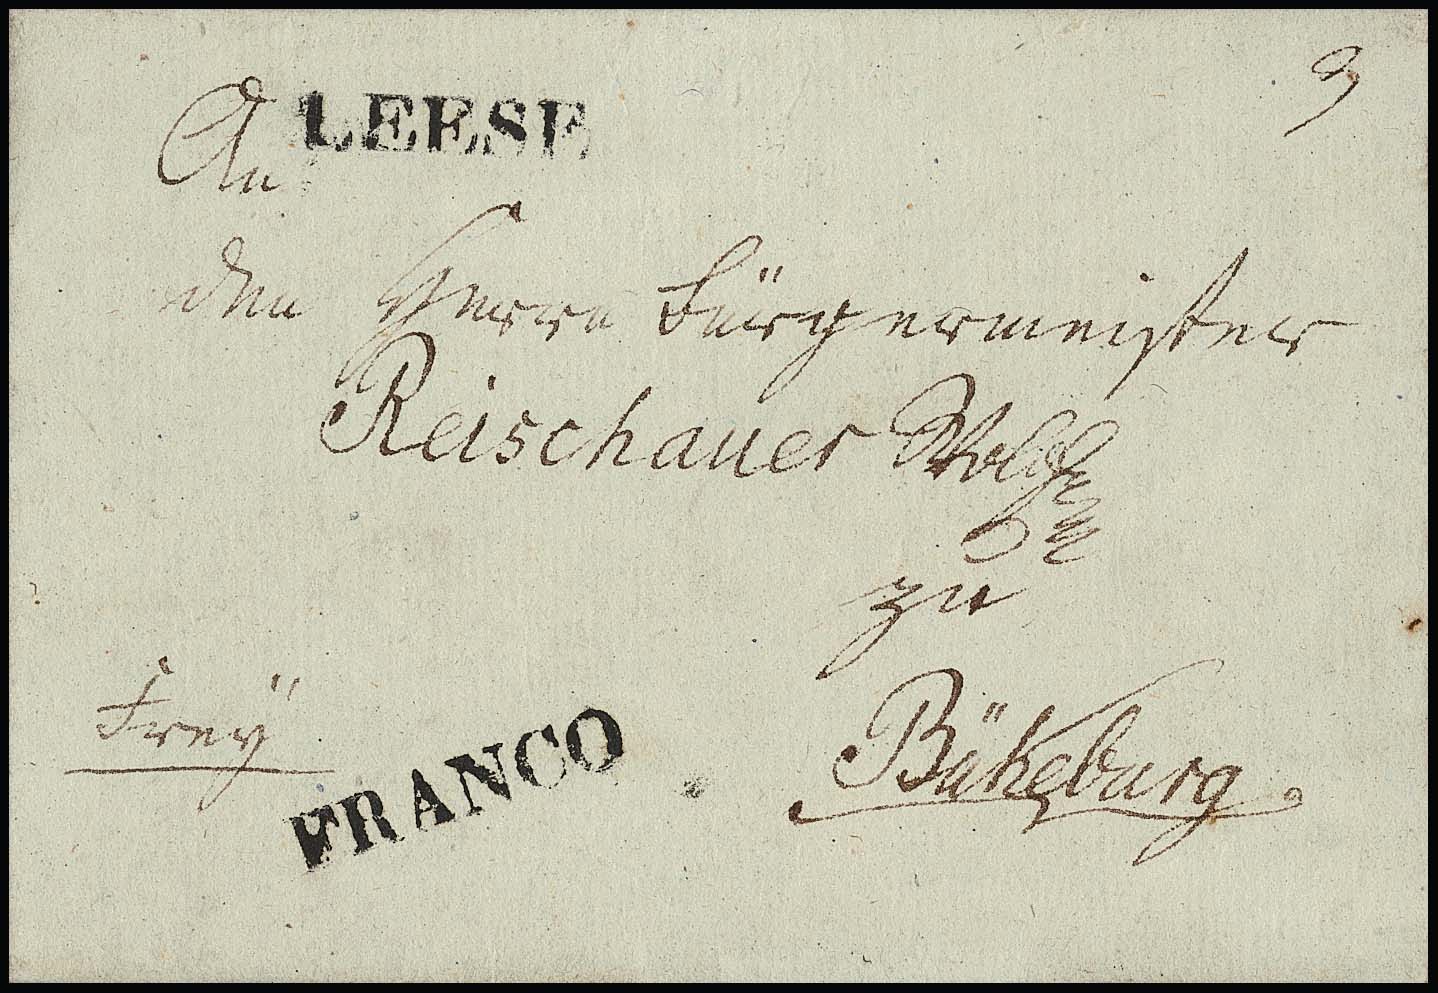 An LEESE
den Herrn Bürgermeister
Reischauer Wolgb
zu
Bükeburg.
Freÿ
FRANCO